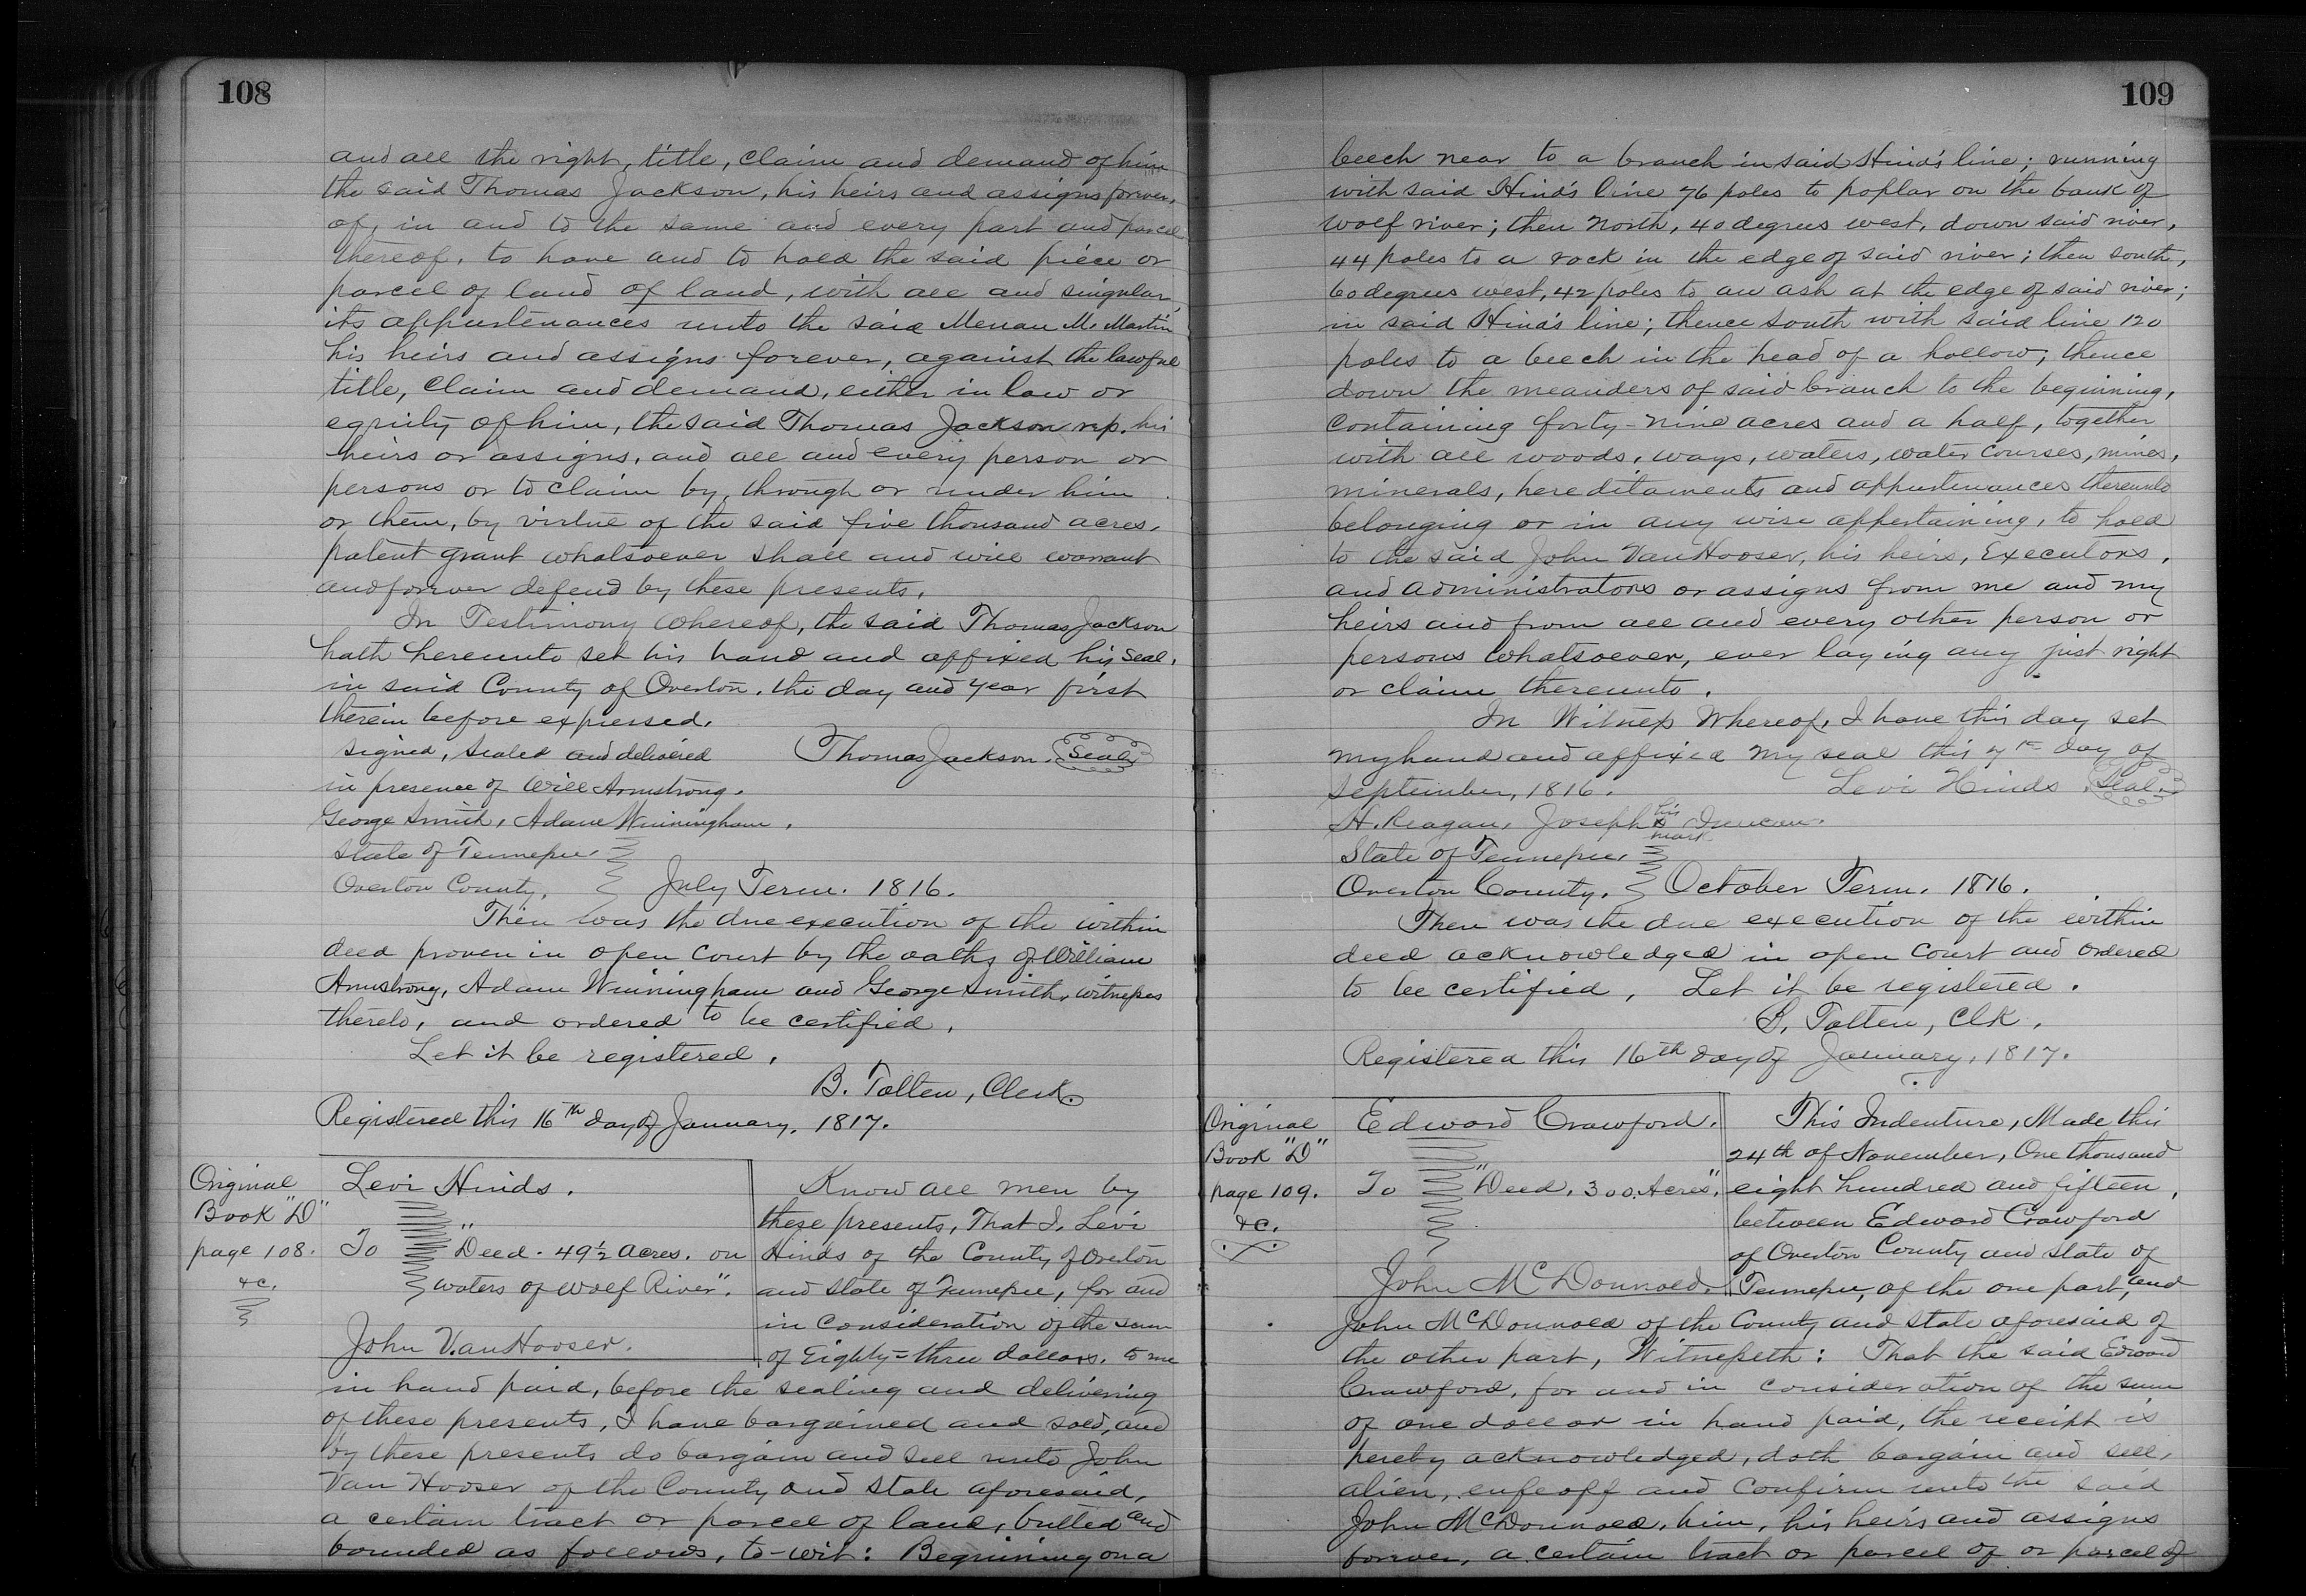 108
and all the right, title, claim and demand of him
the said Thomas Jackson, his heirs and assigns forever,
of, in and to the same and every part and parcel
thereof, to have and to hold the said piece or
parcel of land of land, with all and singular,
its appurtenances unto the said Menan M. Martin
his heirs and assigns forever, against the lawful
title, claim and demand, either in law or
equity of him, the said Thomas Jackson rep. his
heirs or assigns, and all and every person or
persons or to claim by, through or under him
or them, by virtue of the said five thousand acres,
patent grant whatsoever shall and will warrant
and forever defend by these presents.
In Testimony whereof, the said Thomas Jackson
hath hereunto set his hand and affixed his seal,
in said County of Overton, the day and year first
therein before expressed.
signed, sealed and delivered Thomas Jackson. Seal
in presence of Will Armstrong.
George Smith, Adam Winningham.
State of Tennessee,
Overton County. July Term. 1816.
Then was the due execution of the within
deed proven in open court by the oaths of William
Armstrong, Adam Winningham and George Smith, witnesses
thereto, and ordered to be certified.
Let it be registered.
B. Totten, Clerk.
Registered this 16th day of January, 1817.
Original
Book "D"
page 108.
&c.
Levi Hinds.
To "Deed. 49½ Acres. on
waters of Wolf River".
John VanHooser.
Know all men by
these presents, That I, Levi
Hinds of the County of Overton
and State of Tennessee, for and
in consideration of the sum
of Eighty=three dollars, to me
in hand paid, before the sealing and delivering
of these presents, I have bargained and sold, and
by these presents do bargain and sell unto John
Van Hooser of the County and State aforesaid,
a certain tract or parcel of land, butted and
bounded as follows, to-wit: Beginning on a
109
beech near to a branch in said Hind's line; running
with said Hind's line 76 poles to poplar on the bank of
wolf river; then North, 40 degrees west, down said river,
44 poles to a rock in the edge of said river; then south,
60 degrees west, 42 poles to an ash at the edge of said river;
in said Hind's line; thence South with said line 120
poles to a beech in the head of a hollow; thence
down the meanders of said branch to the beginning,
containing forty-nine acres and a half, together
with all woods, ways, waters, water courses, mines,
minerals, hereditaments and appurtenances thereunto
belonging or in any wise appertaining, to hold
to the said John VanHooser, his heirs, Executors,
and administrators or assigns from me and my
heirs and from all and every other person or
persons whatsoever, ever laying any just right
or claim thereunto.
In Witness Whereof, I have this day set
my hand and affixed my seal this 7th day of
September, 1816. Levi Hinds. Seal.
H. Reagan, Joseph his x mark Duncan.
State of Tennessee,
Overton County. October Term. 1816.
Then was the due execution of the within
deed acknowledged in open court and ordered
to be certified, Let it be registered.
B. Totten, Clk.
Registered this 16th day of January, 1817.
Original
Book "D"
page 109.
&c.
Edward Crawford.
To "Deed. 300. Acres".
John McDonnold.
This Indenture, Made this
24th of November, One thousand
eight hundred and fifteen,
between Edward Crawford
of Overton County and State of
Tennessee, of the one part, and
John McDonnold of the County and State aforesaid of
the other part, Witnesseth: That the said Edward
Crawford, for and in consideration of the sum
of one dollar in hand paid, the receipt is
hereby acknowledged, doth bargain and sell,
alien, enfeoff and confirm unto the said
John McDonnold, him, his heirs and assigns
forever, a certain tract or parcel of or parcel of